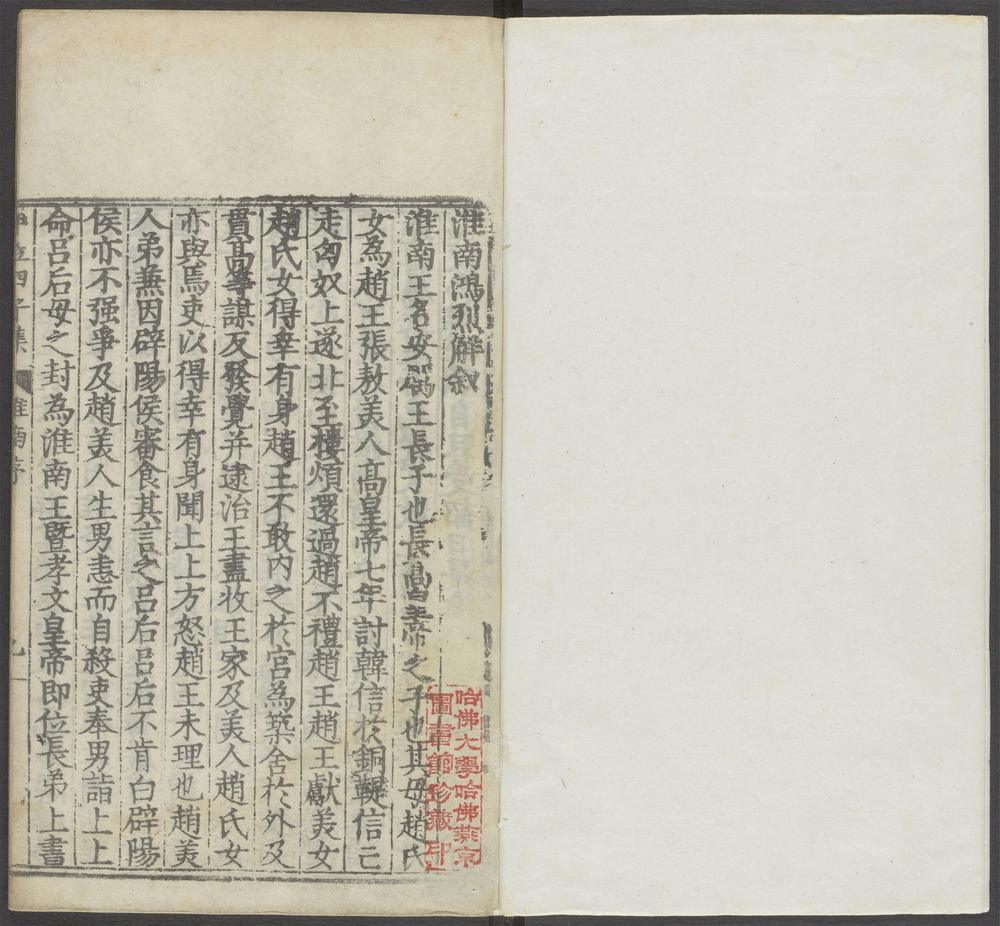 淮南鴻烈解叙
淮南王名安厲王長子也長高皇帝之子也其母趙氏
女為趙王張敖美人高皇帝七年討韓信於銅鞮信亡
走匈奴上遂北至樓煩還過趙不禮趙王趙王獻美女
趙氏女得幸有身趙王不敢内之於宮為築舍於外及
貫高等謀反發覺并逮治王盡收王家及美人趙氏女
亦與焉吏以得幸有身聞上上方怒趙王未理也趙美
人弟兼因辟陽侯審食其言之吕后吕后不肯白辟陽
侯亦不强爭及趙美人生男恚而自殺吏奉男詣上上
命吕后母之封為淮南王暨孝文皇帝即位長弟上書
四子集 淮南序
哈佛大學哈佛燕京
圖書館珍藏印